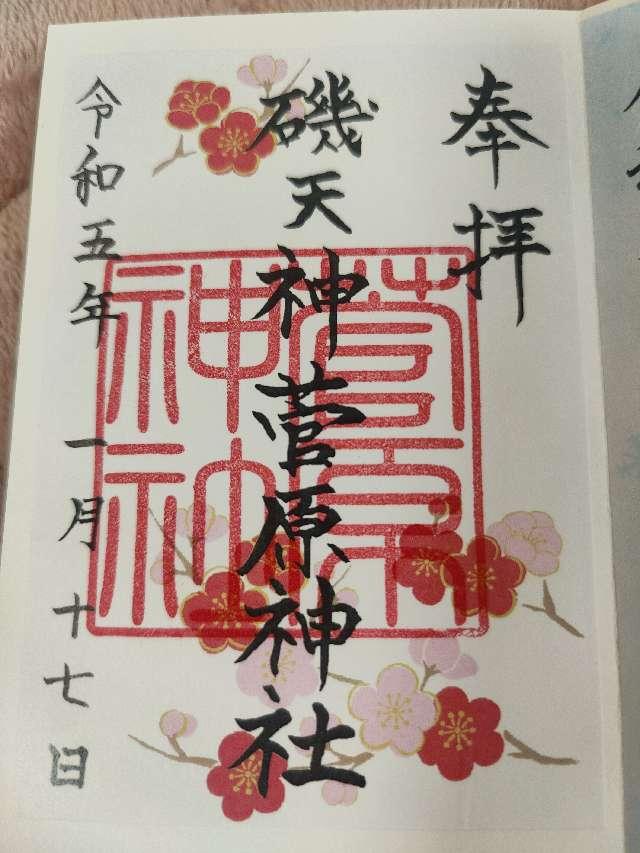 奉拝
磯天神菅原神社
菅原神社
令和五年一月十七日